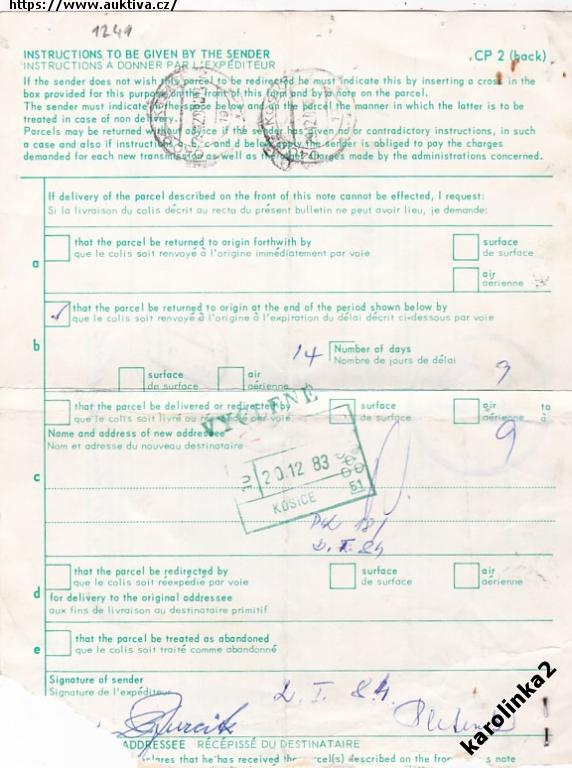 https://www.auktiva.cz/
1249
INSTRUCTIONS TO BE GIVEN BY THE SENDER
CP 2 (back)
INSTRUCTIONS A DONNER PAR L'EXPÉDITEUR
If the sender does not wish this parcel to be redirected he must indicate this by inserting a cross in the
box provided for this purpose on the front of this form and by a note on the parcel.
The sender must indicate in the space below and on the parcel the manner in which the latter is to be
treated in case of non delivery.
Parcels may be returned without advice if the sender has given no or contradictory instructions, in such
a case and also if instructions a, b, c and d below apply the sender is obliged to pay the charges
demanded for each new transmission as well as the other charges made by the administrations concerned.
If delivery of the parcel described on the front of this note cannot be effected, I request:
Si la livraison du colis décrit au recto du présent bulletin ne peut avoir lieu, je demande:
a
that the parcel be returned to origin forthwith by
que le colis soit renvoyé à l'origine immédiatement par voie
surface
de surface
air
aérienne
b
that the parcel be returned to origin at the end of the period shown below by
que le colis soit renvoyé à l'origine à l'expiration du délai décrit ci-dessous par voie
14
Number of days
Nombre de jours de délai
9
surface
de surface
air
aérienne
c
that the parcel be delivered or redirected by
que le colis soit livré ou par voie
surface
de surface
air
aérienne
to
à
Name and address of new addressee
Nom et adresse du nouveau destinataire
9
VYCLENÉ
20.12 83
51
KOŠICE
181
2. I. 84
d
that the parcel be redirected by
que le colis soit réexpédié par voie
surface
de surface
air
aérienne
for delivery to the original addressee
aux fins de livraison au destinataire primitif
e
that the parcel be treated as abandoned
que le colis soit traité comme abandonné
Signature of sender
Signature de l'expéditeur
2. I. 84.
karolinka2
ADDRESSEE RÉCÉPISSÉ DU DESTINATAIRE
that he has received the described on the front note